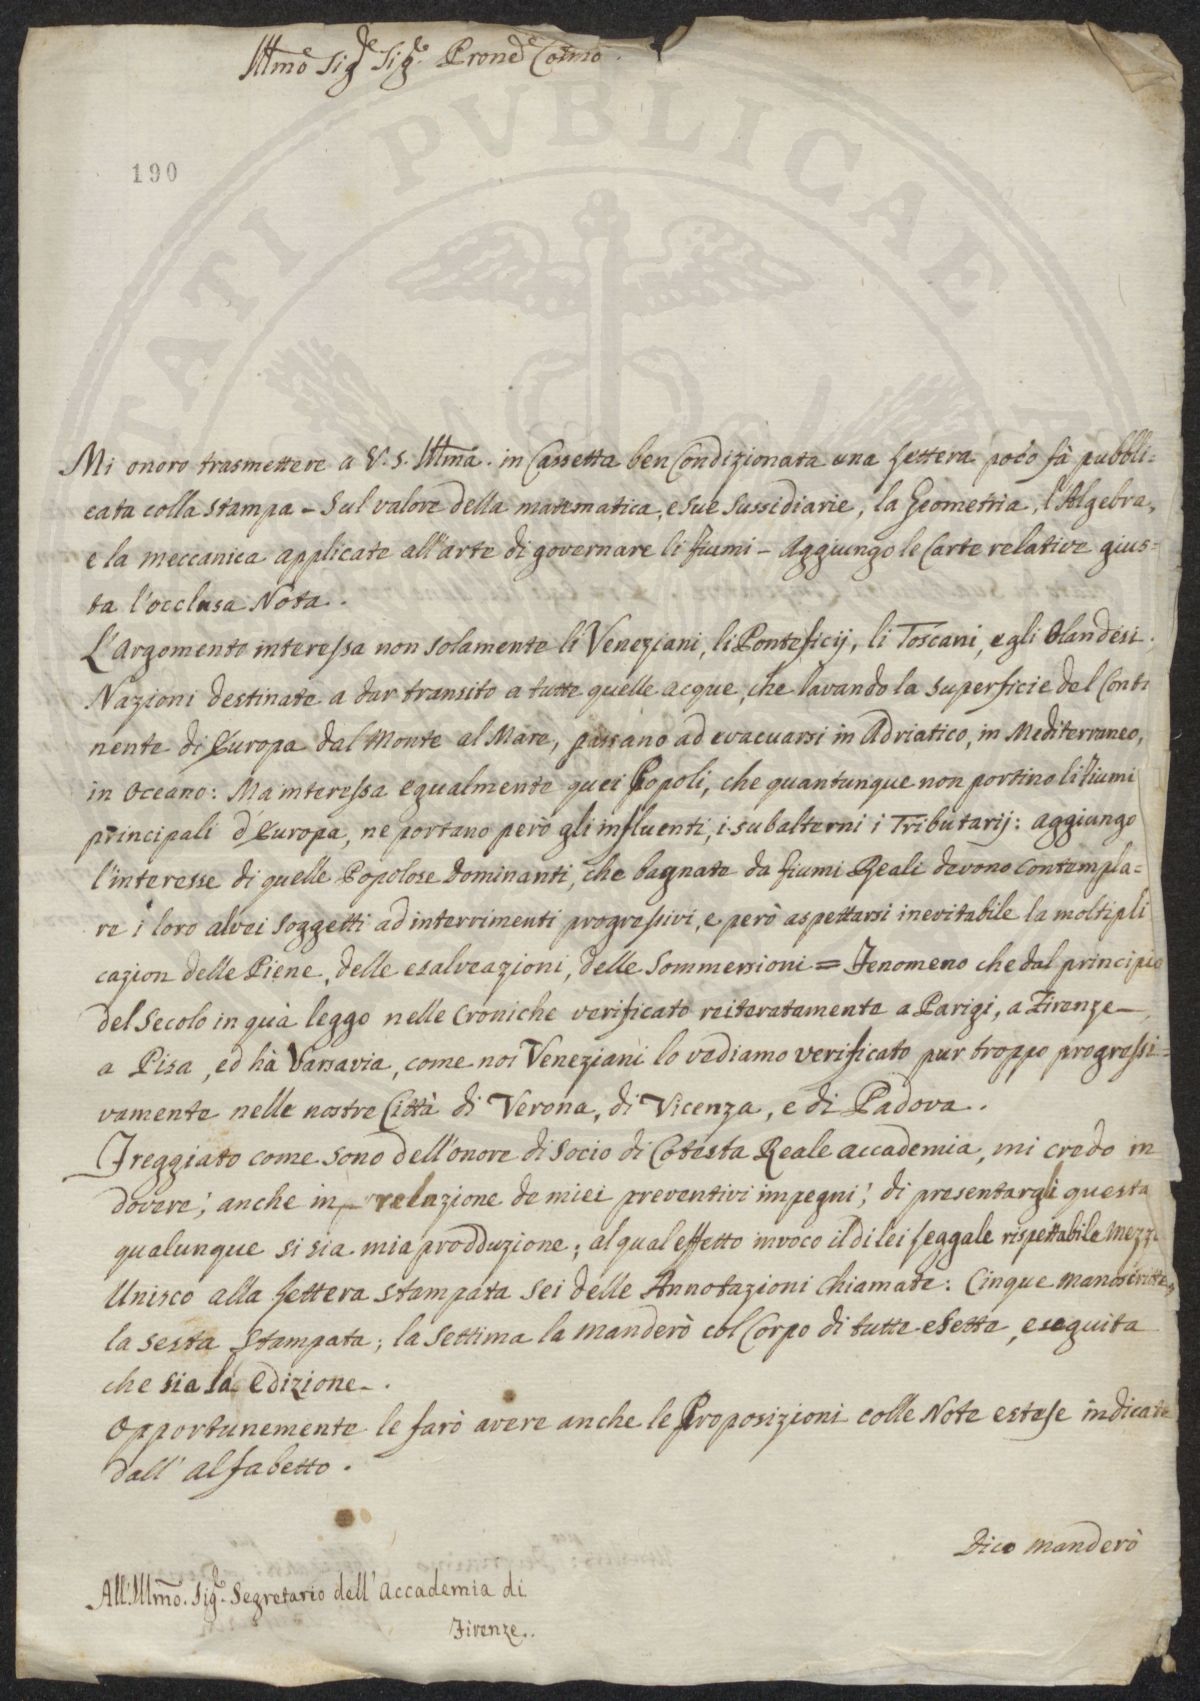 Illmo Sigr Sigr Prone Colmo.
190
Mi onoro trasmettere a V. S. Illma. in Cassetta ben Condizionata una Lettera poco fà pubbli=
cata colla Stampa - Sul valore della matematica, e sue Sussidiarie, la Geometria, l'Algebra,
e la meccanica applicate all'arte di governare li fiumi - Aggiungo le Carte relative gius=
ta l'occlusa Nota.
L'Argomento interessa non solamente li Veneziani, li Pontificij, li Toscani, e gli Olandesi.
Nazioni destinate a dar transito a tutte quelle acque, che lavando la superficie del Conti
nente di Europa dal Monte al Mare, passano ad evacuarsi in Adriatico, in Mediterraneo,
in Oceano: Ma interessa egualmente quei Popoli, che quantunque non portino li fiumi
principali d'Europa, ne portano però gli influenti, i subalterni i Tributarij: aggiungo
l'interesse di quelle Popolose Dominanti, che bagnate da fiumi Reali devono contempla=
re i loro alvei soggetti ad interrimenti progressivi, e però aspettarsi inevitabile la moltipli
cazion delle Piene, delle esalveazioni, delle Sommersioni = Fenomeno che dal principio
del Secolo in quà leggo nelle Croniche verificato reiteratamente a Parigi, a Firenze-,
a Pisa, ed hà Varsavia, come noi Veneziani lo vediamo verificato pur troppo progressi=
vamente nelle nostre Città di Verona, di Vicenza, e di Padova.
Freggiato come sono dell'onore di Socio di Cotesta Reale accademia, mi credo in
dovere; anche in relazione de miei preventivi impegni; di presentargli questa
qualunque si sia mia prodduzione; al qual effetto invoco il di lei Leggale rispettabile Mezzo
Unisco alla Lettera stampata sei delle Annotazioni chiamate: Cinque manoscritte,
la sesta Stampata; la Settima la manderò col Corpo di tutte e Sette, eseguita
che sia la Edizione-.
Opportunemente le farò avere anche le Proposizioni colle Note estese indicate
dall' alfabetto.
Dico manderò
All'Illmo. Sigr. Segretario dell'Accademia di
Firenze..